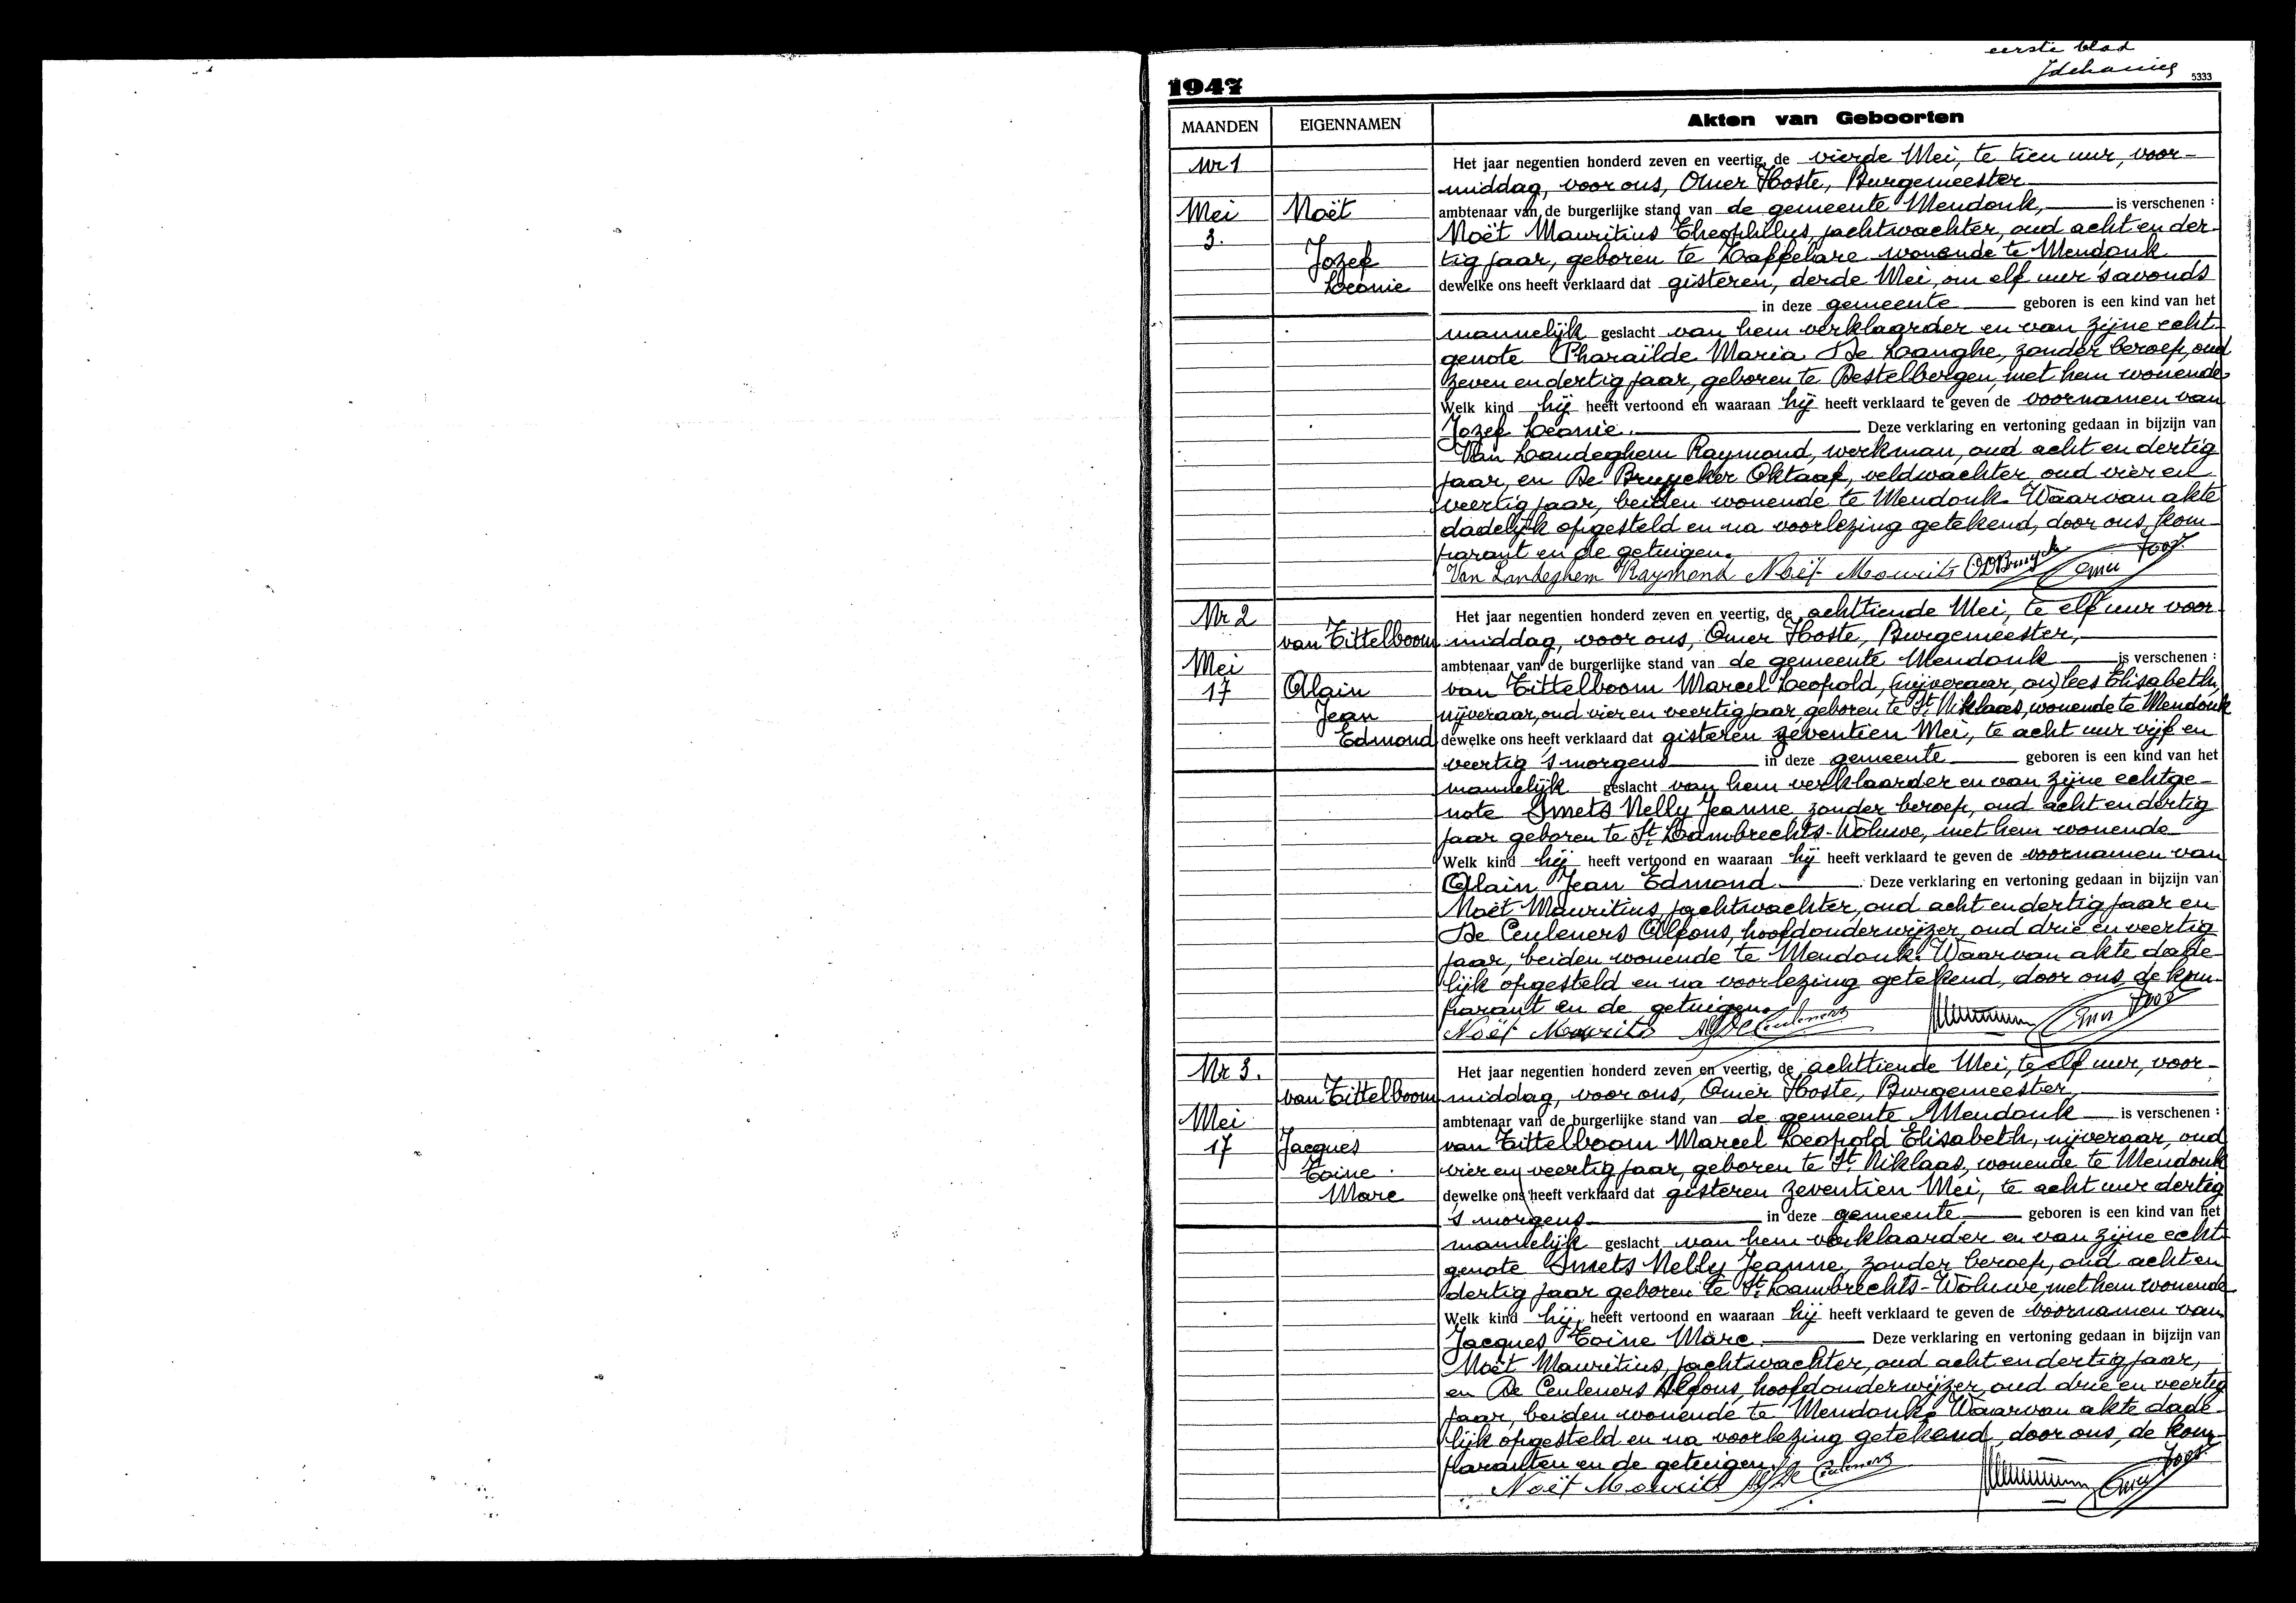 eerste blad
5333
1947
MAANDEN EIGENNAMEN Akten van Geboorten
Nr 1
Mei
3.
Noët
Jozef
Leonie
Het jaar negentien honderd zeven en veertig, de vierde Mei, te tien uur, voor-
middag, voor ons, Omer Joos, Burgemeester
ambtenaar van de burgerlijke stand van de gemeente Mendonk, is verschenen :
Noët Mauritius Theophilus, jachtwachter, oud acht en der-
tig jaar, geboren te Kappellare wonende te Mendonk
dewelke ons heeft verklaard dat gisteren, derde Mei, om elf uur 's avonds
in deze gemeente geboren is een kind van het
mannelijk geslacht van hem verklaarder en van zijne echt-
genote Pharaïlde Maria De Langhe, zonder beroep, oud
zeven en dertig jaar, geboren te Destelbergen, met hem wonende
Welk kind hij heeft vertoond en waaraan hij heeft verklaard te geven de voornamen van
Jozef Leonie. Deze verklaring en vertoning gedaan in bijzijn van
Van Landeghem Raymond, werkman, oud acht en dertig
jaar, en De Bruycker Oktaaf, veldwachter, oud vier en
veertig jaar, beiden wonende te Mendonk. Waarvan akte
dadelijk opgesteld en na voorlezing getekend, door ons, kom-
parant en de getuigen.
Van Landeghem Raymond Noët Mourits ODBruycke Omer Joos
Nr 2
Mei
17
van Tittelboom
Alain
Jean
Edmond
Het jaar negentien honderd zeven en veertig, de achttiende Mei, te elf uur voor-
middag, voor ons, Omer Joos, Burgemeester,
ambtenaar van de burgerlijke stand van de gemeente Mendonk is verschenen :
van Tittelboom Marcel Leopold, (nijveraar, ou) lees Elisabeth,
nijveraar, oud vier en veertig jaar, geboren te St. Niklaas, wonende te Mendonk
dewelke ons heeft verklaard dat gisteren zeventien Mei, te acht uur vijf en
veertig 's morgens in deze gemeente geboren is een kind van het
mannelijk geslacht van hem verklaarder en van zijne echtge-
note Smets Nelly Jeanne zonder beroep, oud acht en dertig
jaar geboren te St. Lambrechts-Woluwe, met hem wonende
Welk kind hij heeft vertoond en waaraan hij heeft verklaard te geven de voornamen van
Alain Jean Edmond. Deze verklaring en vertoning gedaan in bijzijn van
Noët Mauritius, jachtwachter, oud acht en dertig jaar en
De Ceuleners Alfons, hoofdonderwijzer, oud drie en veertig
jaar, beiden wonende te Mendonk. Waarvan akte dade-
lijk opgesteld en na voorlezing getekend, door ons, de kom-
parant en de getuigen.
Noët Mourits Alf De Ceuleners Omer Joos
Nr 3.
Mei
17
van Tittelboom
Jacques
Toine
Marc
Het jaar negentien honderd zeven en veertig, de achttiende Mei, te elf uur, voor-
middag, voor ons, Omer Joos, Burgemeester,
ambtenaar van de burgerlijke stand van de gemeente Mendonk is verschenen :
van Tittelboom Marcel Leopold Elisabeth, nijveraar, oud
vier en veertig jaar, geboren te St. Niklaas, wonende te Mendonk
dewelke ons heeft verklaard dat gisteren zeventien Mei, te acht uur dertig
's morgens in deze gemeente geboren is een kind van het
mannelijk geslacht van hem verklaarder en van zijne echt-
genote Smets Nelly Jeanne, zonder beroep, oud acht en
dertig jaar geboren te St. Lambrechts-Woluwe, met hem wonende
Welk kind hij heeft vertoond en waaraan hij heeft verklaard te geven de voornamen van
Jacques Toine Marc. Deze verklaring en vertoning gedaan in bijzijn van
Noët Mauritius, jachtwachter, oud acht en dertig jaar,
en De Ceuleners Alfons, hoofdonderwijzer, oud drie en veertig
jaar, beiden wonende te Mendonk. Waarvan akte dade-
lijk opgesteld en na voorlezing getekend, door ons, de kom-
paranten en de getuigen.
Noët Mourits Alf De Ceuleners Omer Joos